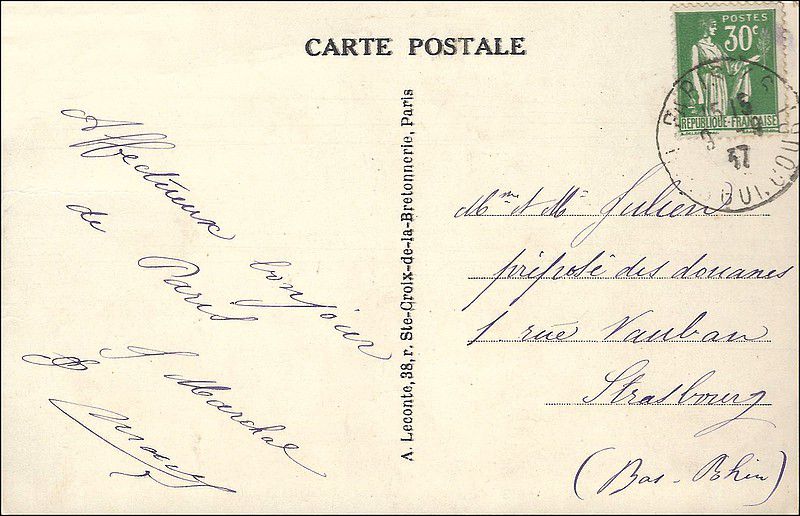 CARTE POSTALE
POSTES
30c
RÉPUBLIQUE-FRANÇAISE
PARIS
15 15
9 - 9
37
Affectueux bonjour
de Paris
J Marchal
A. Leconte, 38, r. Ste-Croix-de-la-Bretonnerie, Paris
Mme et Mr Julien
préposé des douanes
1. rue Vauban
Strasbourg
(Bas-Rhin)